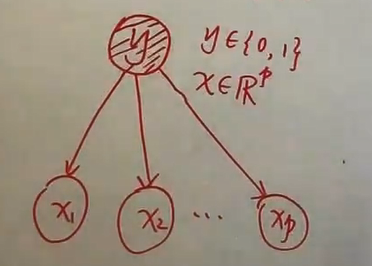 y y∈{0,1}
x∈ℝᵖ
x₁ x₂ ... xₚ